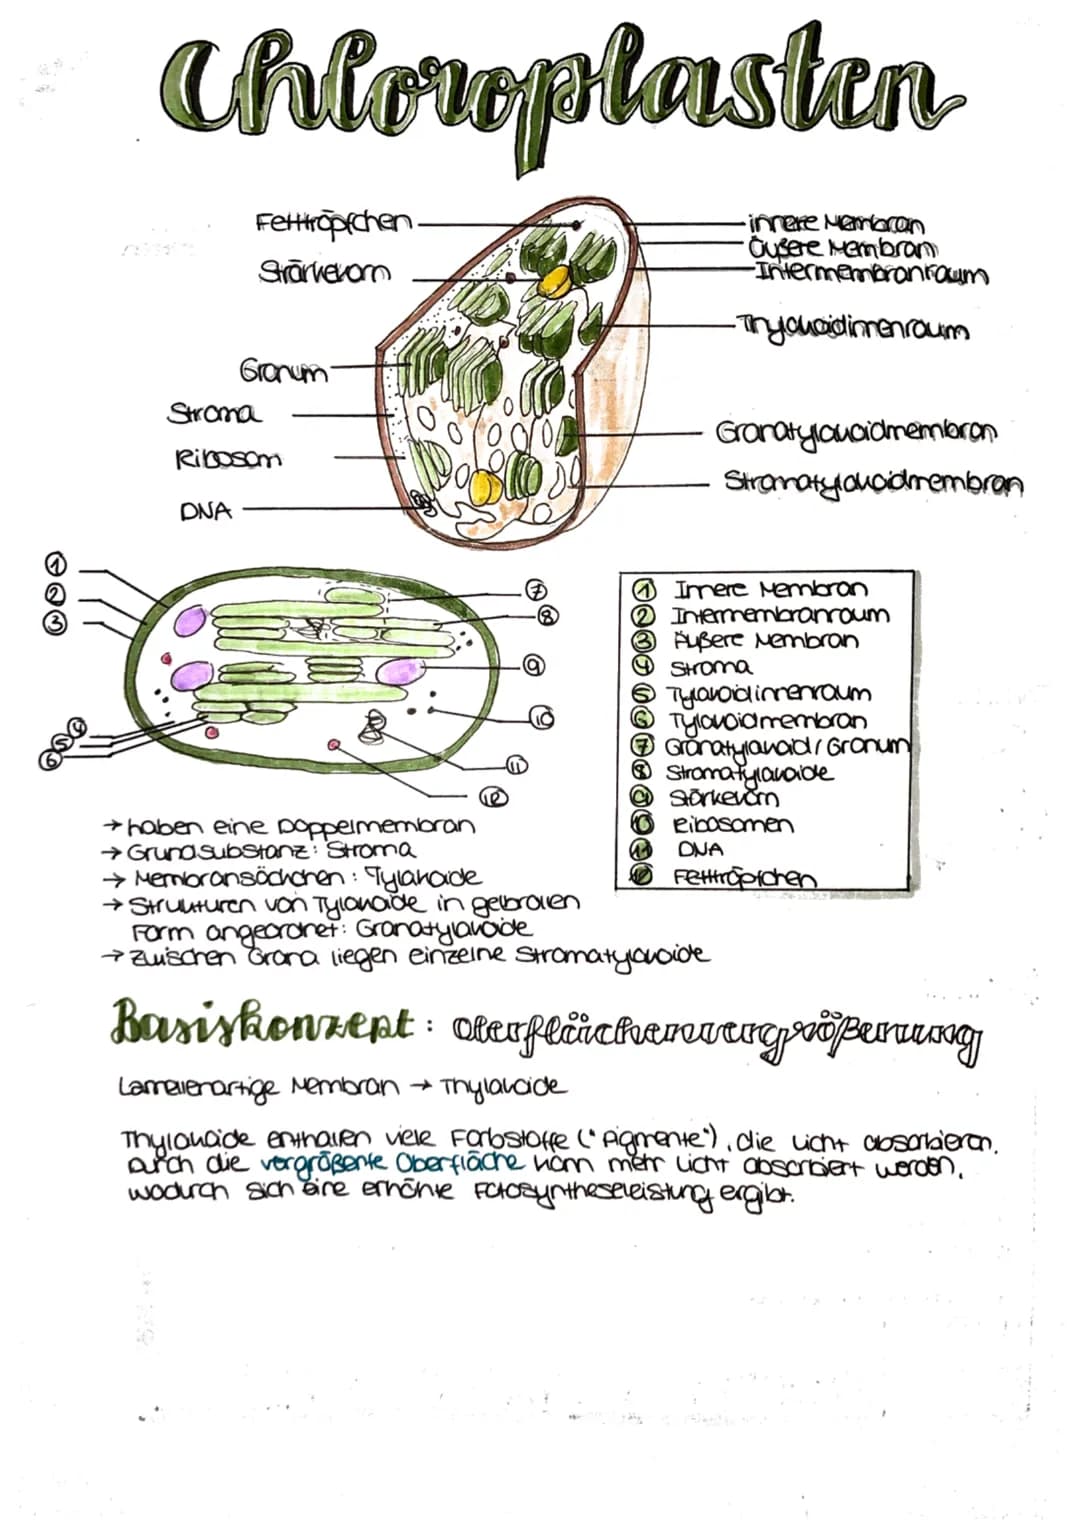 Chloroplasten
Fetttröpfchen
innere Membran
Äußere Membran
Intermembranraum
Stärkekorn
Thylakoidinnenraum
Granum
Stroma
Granatylakoidmembran
Ribosom
Stromatylakoidmembran
DNA
1
2
3
4
5
6
7
8
9
10
11
12
1 Innere Membran
2 Intermembranraum
3 Äußere Membran
4 Stroma
5 Tylakoidinnenraum
6 Tylakoidmembran
7 Granatylakoid / Granum
8 Stromatylakoide
9 Stärkekorn
10 Ribosomen
11 DNA
12 Fetttröpfchen
→ haben eine Doppelmembran
→ Grundsubstanz: Stroma
→ Membransäckchen: Tylakoide
→ Strukturen von Tylakoide in gelbrollen
Form angeordnet: Granatylakoide
→ Zwischen Grana liegen einzelne Stromatylakoide
Basiskonzept: Oberflächenvergrößerung
Lamellenartige Membran → Thylakoide
Thylakoide enthalten viele Farbstoffe ("Pigmente"), die Licht absorbieren.
Durch die vergrößerte Oberfläche kann mehr Licht absorbiert werden,
wodurch sich eine erhöhte Fotosyntheseleistung ergibt.